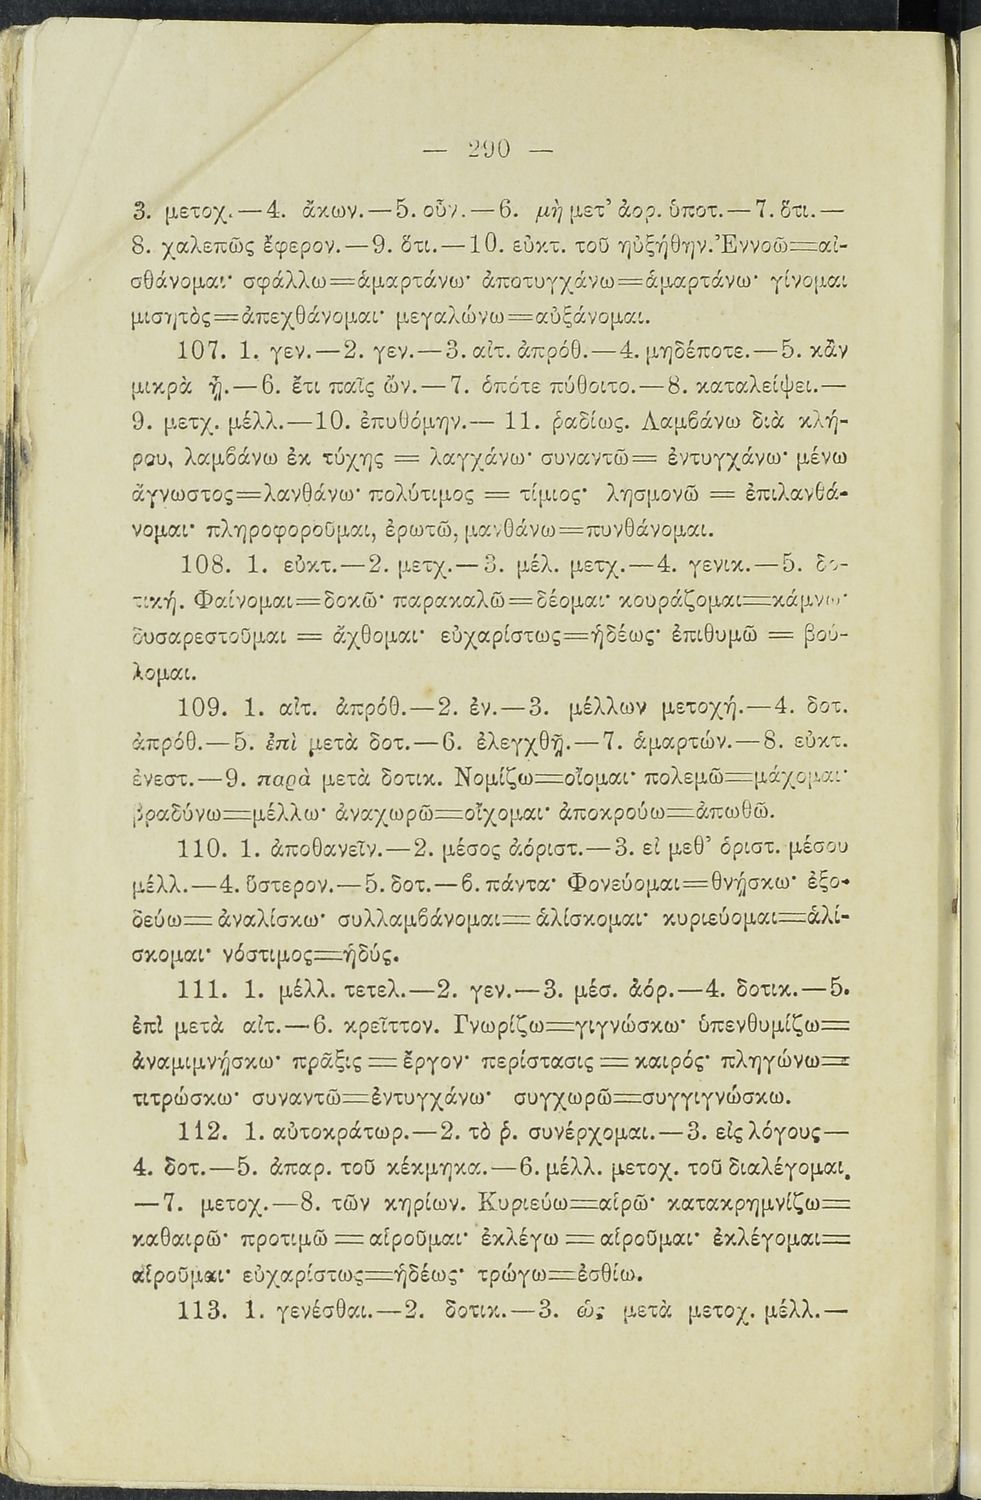 — 290 —
3. μετοχ.—4. ἄκων.—5. οὖν.—6. μὴ μετ’ ἀορ. ὑποτ.—7. ὅτι.—
8. χαλεπῶς ἔφερον.—9. ὅτι.—10. εὐκτ. τοῦ ηὐξήθην. Ἐννοῶ=αἰ-
σθάνομαι· σφάλλω=ἁμαρτάνω· ἀποτυγχάνω=ἁμαρτάνω· γίνομαι
μισητὸς=ἀπεχθάνομαι· μεγαλώνω=αὐξάνομαι.
107. 1. γεν.—2. γεν.—3. αἰτ. ἀπρόθ.—4. μηδέποτε.—5. κἂν
μικρὰ ᾖ.—6. ἔτι παῖς ὤν.—7. ὁπότε πύθοιτο.—8. καταλείψει.—
9. μετχ. μέλλ.—10. ἐπυθόμην.—11. ῥαδίως. Λαμβάνω διὰ κλή-
ρου, λαμβάνω ἐκ τύχης = λαγχάνω· συναντῶ= ἐντυγχάνω· μένω
ἄγνωστος=λανθάνω· πολύτιμος = τίμιος· λησμονῶ = ἐπιλανθά-
νομαι· πληροφοροῦμαι, ἐρωτῶ, μανθάνω=πυνθάνομαι.
108. 1. εὐκτ.—2. μετχ.—3. μέλ. μετχ.—4. γενικ.—5. δο-
τική. Φαίνομαι=δοκῶ· παρακαλῶ=δέομαι· κουράζομαι=κάμνω·
δυσαρεστοῦμαι = ἄχθομαι· εὐχαρίστως=ἡδέως· ἐπιθυμῶ = βού-
λομαι.
109. 1. αἰτ. ἀπρόθ.—2. ἐν.—3. μέλλων μετοχή.—4. δοτ.
ἀπρόθ.—5. ἐπὶ μετὰ δοτ.—6. ἐλεγχθῇ.—7. ἁμαρτών.—8. εὐκτ.
ἐνεστ.—9. παρὰ μετὰ δοτικ. Νομίζω=οἴομαι· πολεμῶ=μάχομαι·
βραδύνω=μέλλω· ἀναχωρῶ=οἴχομαι· ἀποκρούω=ἀπωθῶ.
110. 1. ἀποθανεῖν.—2. μέσος ἀόριστ.—3. εἰ μεθ’ ὁριστ. μέσου
μέλλ.—4. ὕστερον.—5. δοτ.—6. πάντα· Φονεύομαι=θνῄσκω· ἐξο-
δεύω=ἀναλίσκω· συλλαμβάνομαι=ἁλίσκομαι· κυριεύομαι=ἁλί-
σκομαι· νόστιμος=ἡδύς.
111. 1. μέλλ. τετελ.—2. γεν.—3. μέσ. ἀόρ.—4. δοτικ.—5.
ἐπὶ μετὰ αἰτ.—6. κρεῖττον. Γνωρίζω=γιγνώσκω· ὑπενθυμίζω=
ἀναμιμνῄσκω· πρᾶξις = ἔργον· περίστασις = καιρός· πληγώνω=
τιτρώσκω· συναντῶ=ἐντυγχάνω· συγχωρῶ=συγγιγνώσκω.
112. 1. αὐτοκράτωρ.—2. τὸ ῥ. συνέρχομαι.—3. εἰς λόγους—
4. δοτ.—5. ἀπαρ. τοῦ κέκμηκα.—6. μέλλ. μετοχ. τοῦ διαλέγομαι.
—7. μετοχ.—8. τῶν κηρίων. Κυριεύω=αἱρῶ· κατακρημνίζω=
καθαιρῶ· προτιμῶ = αἱροῦμαι· ἐκλέγω = αἱροῦμαι· ἐκλέγομαι=
αἱροῦμαι· εὐχαρίστως=ἡδέως· τρώγω=ἐσθίω.
113. 1. γενέσθαι.—2. δοτικ.—3. ὡς μετὰ μετοχ. μέλλ.—